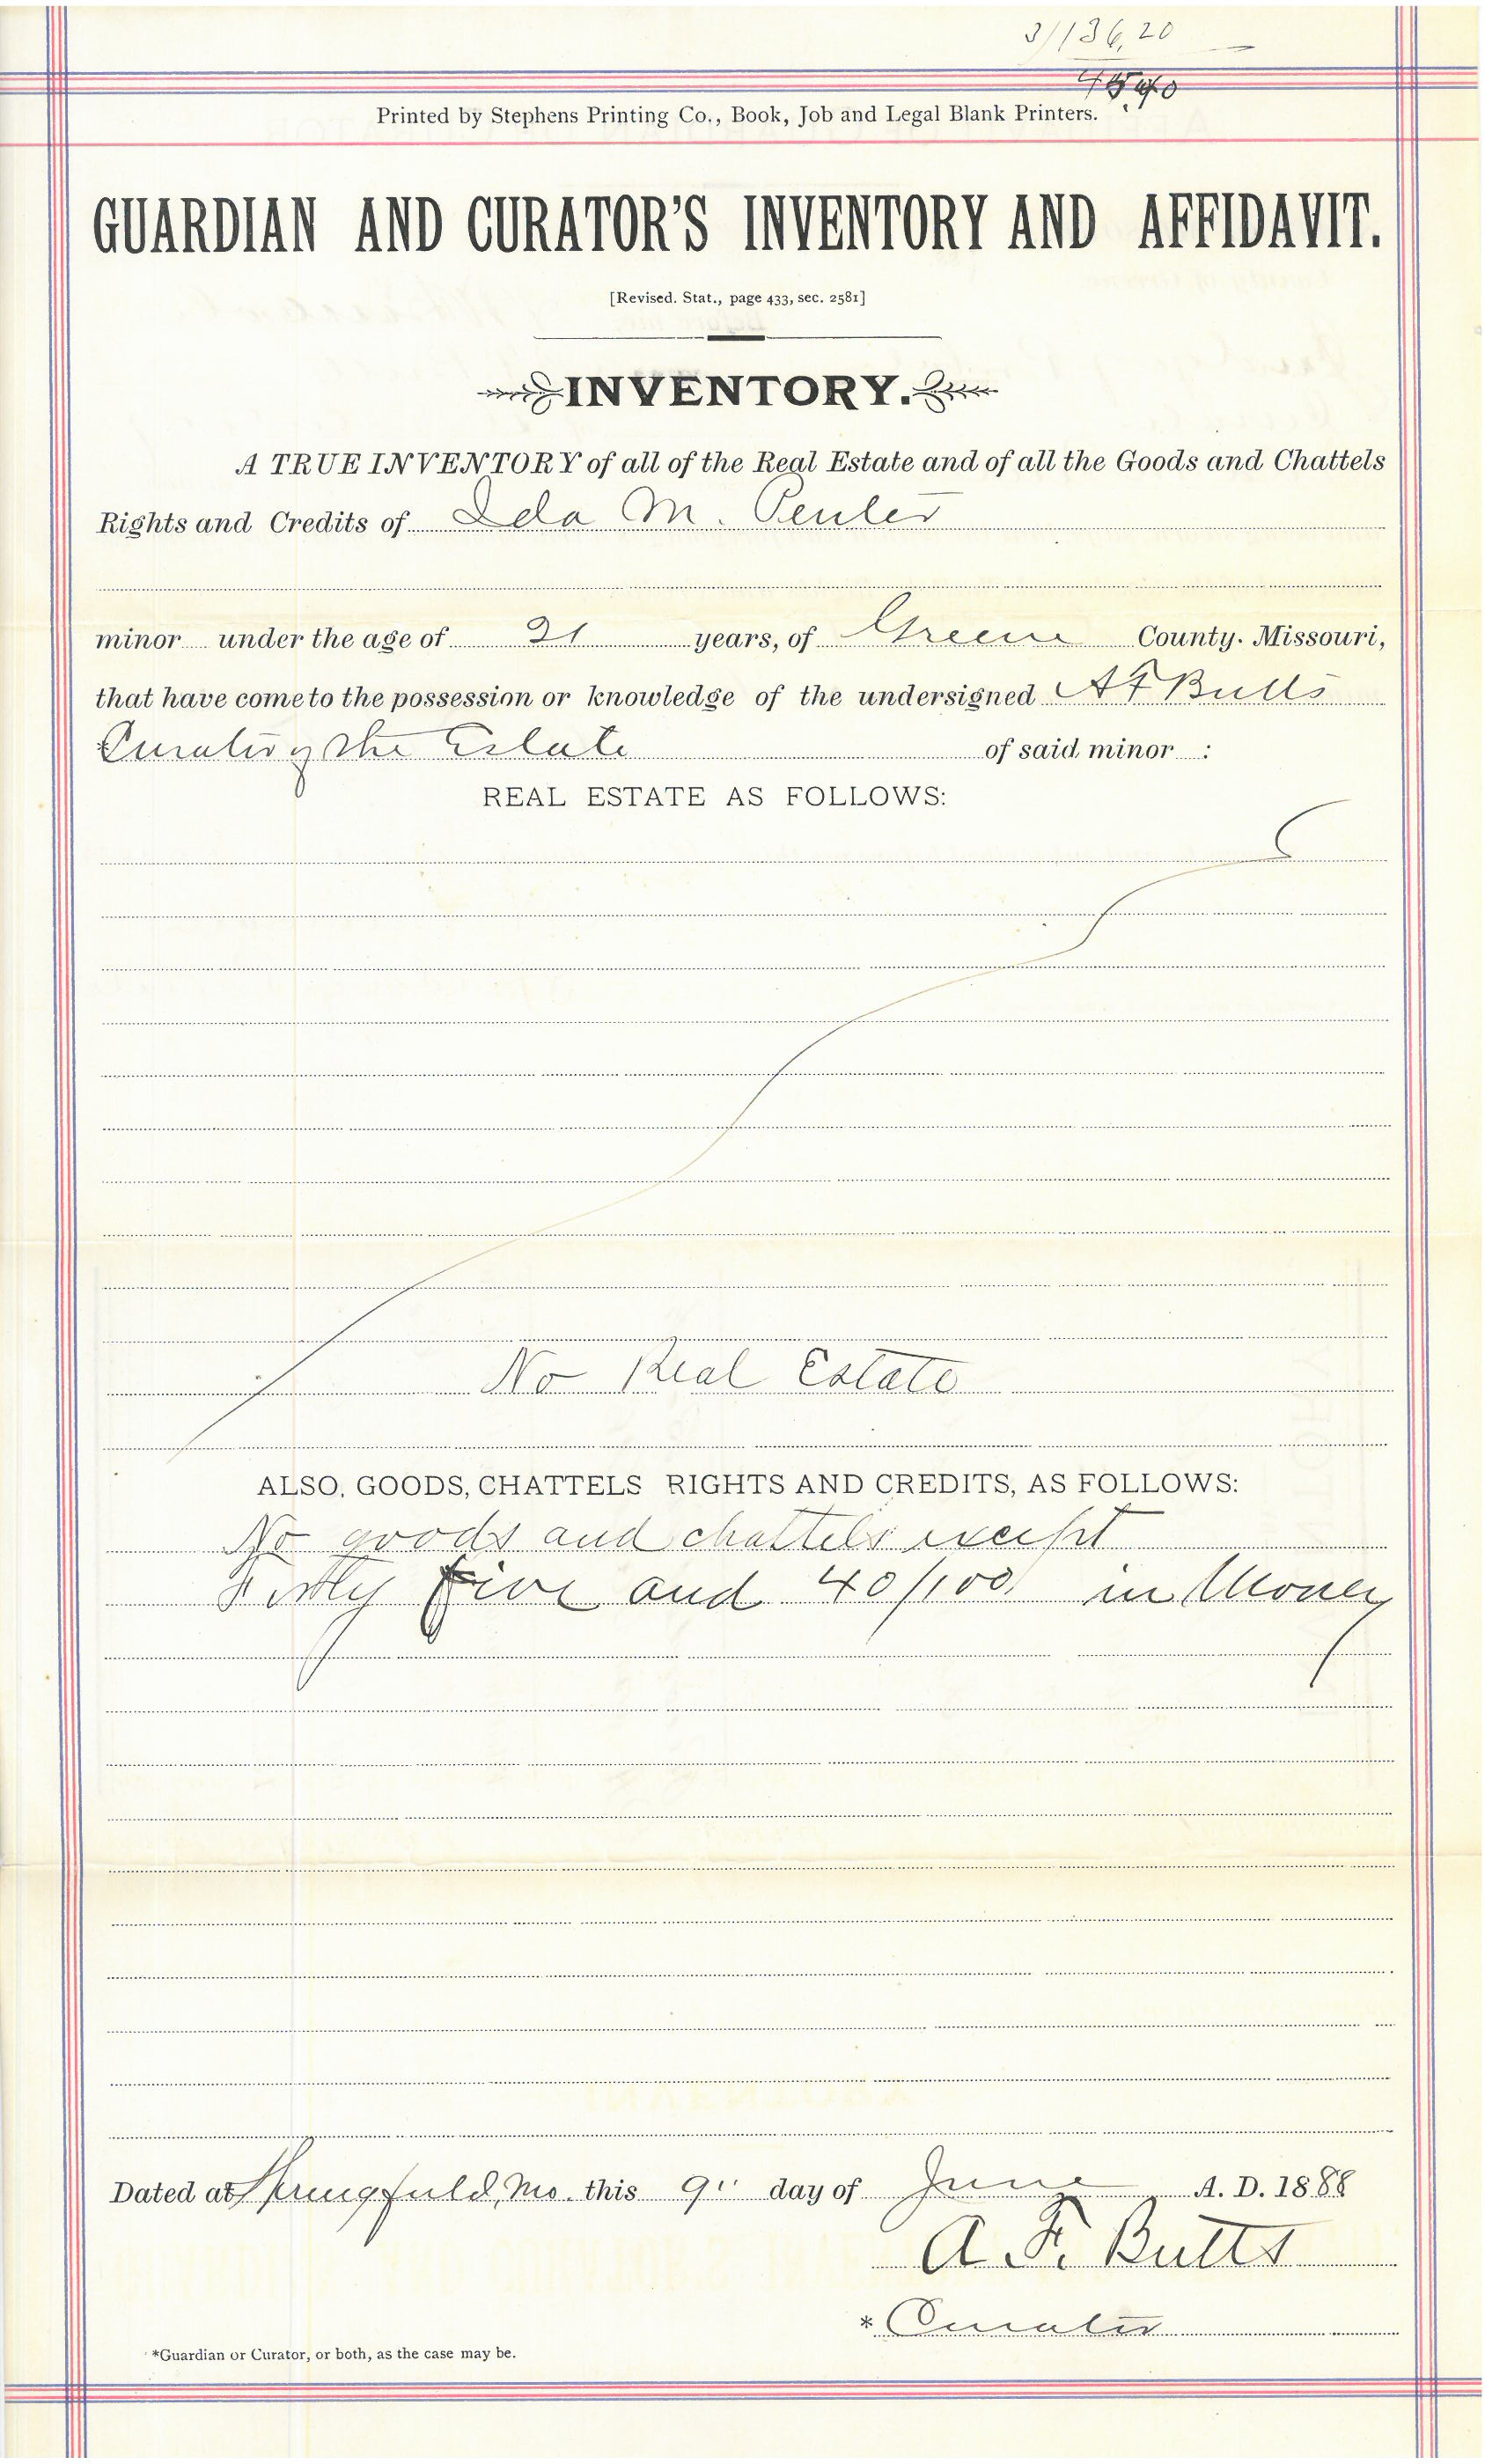 3/136,20
45,40
Printed by Stephens Printing Co., Book, Job and Legal Blank Printers.
GUARDIAN AND CURATOR'S INVENTORY AND AFFIDAVIT.
[Revised. Stat., page 433, sec. 2581]
INVENTORY.
A TRUE INVENTORY of all of the Real Estate and of all the Goods and Chattels
Rights and Credits of Ida M. Penter
minor under the age of 21 years, of Greene County. Missouri,
that have come to the possession or knowledge of the undersigned A F Butts
*Curator of the Estate of said minor :
REAL ESTATE AS FOLLOWS:
No Real Estate
ALSO, GOODS, CHATTELS RIGHTS AND CREDITS, AS FOLLOWS:
No goods and chattels except
Forty five and 40/100 in Money
Dated at Springfield, Mo. this 9" day of June A. D. 1888
A. F. Butts
* Curator
*Guardian or Curator, or both, as the case may be.